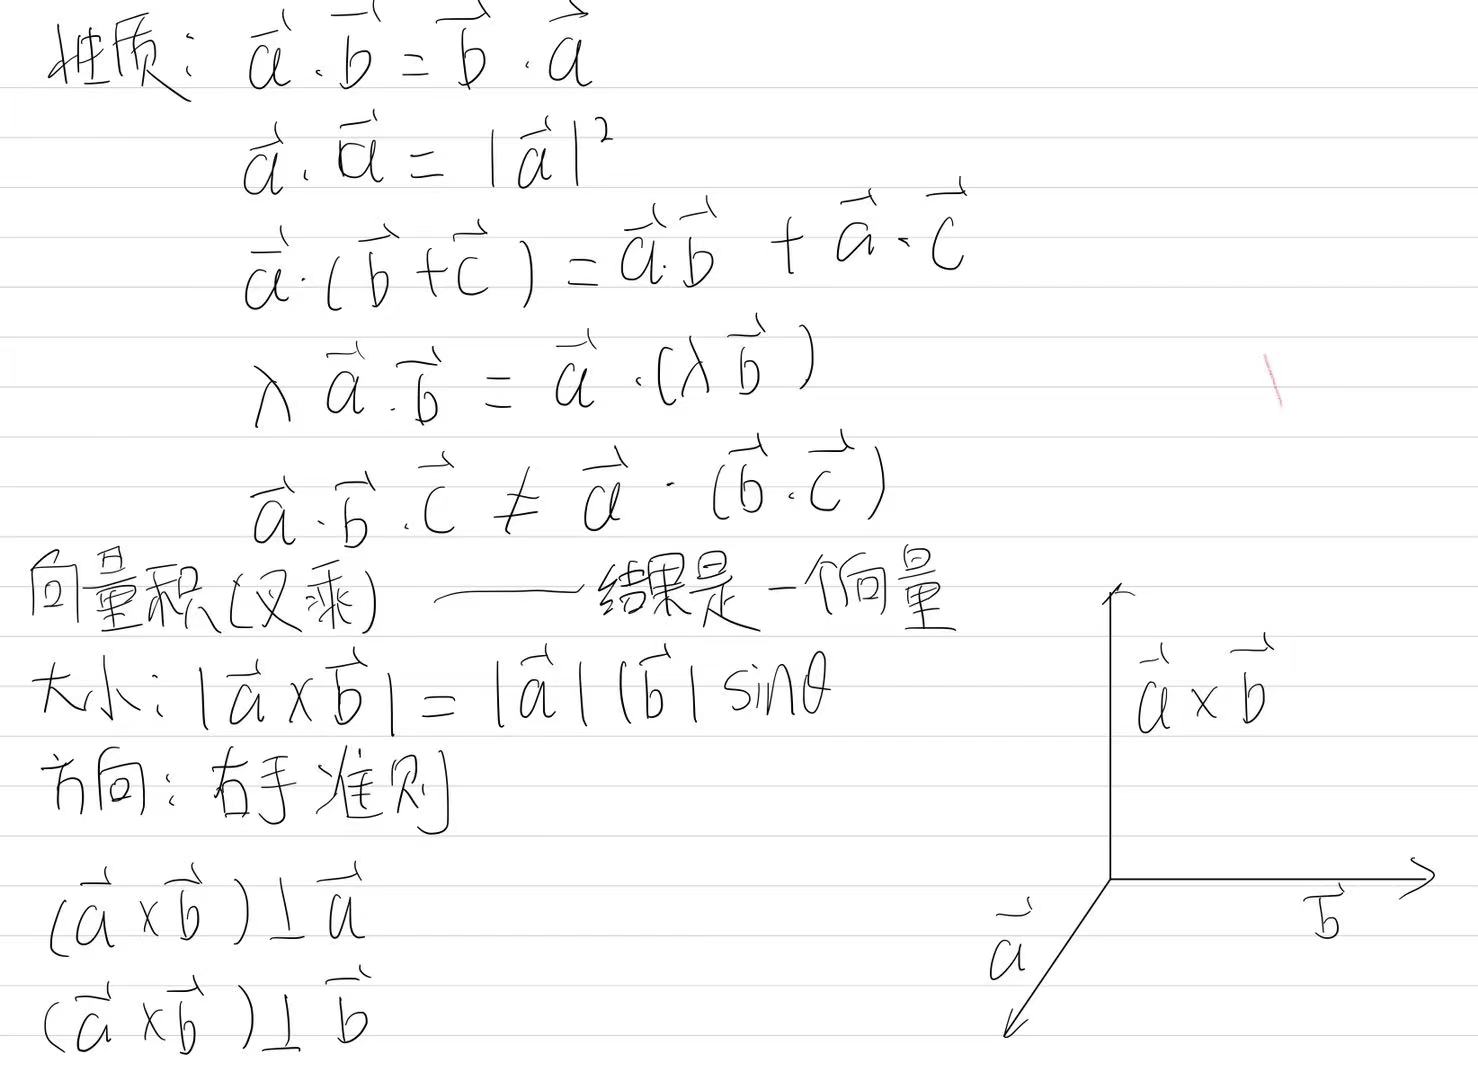 性质: $\vec{a}\cdot\vec{b}=\vec{b}\cdot\vec{a}$
$\vec{a}\cdot\vec{a}=|\vec{a}|^2$
$\vec{a}\cdot(\vec{b}+\vec{c})=\vec{a}\cdot\vec{b}+\vec{a}\cdot\vec{c}$
$\lambda\vec{a}\cdot\vec{b}=\vec{a}\cdot(\lambda\vec{b})$
$\vec{a}\cdot\vec{b}\cdot\vec{c}\neq\vec{a}\cdot(\vec{b}\cdot\vec{c})$
向量积(叉乘) ——结果是一个向量
大小: $|\vec{a}\times\vec{b}|=|\vec{a}||\vec{b}|\sin\theta$
方向: 右手准则
$(\vec{a}\times\vec{b})\perp\vec{a}$
$(\vec{a}\times\vec{b})\perp\vec{b}$
$\vec{a}\times\vec{b}$
$\vec{a}$
$\vec{b}$